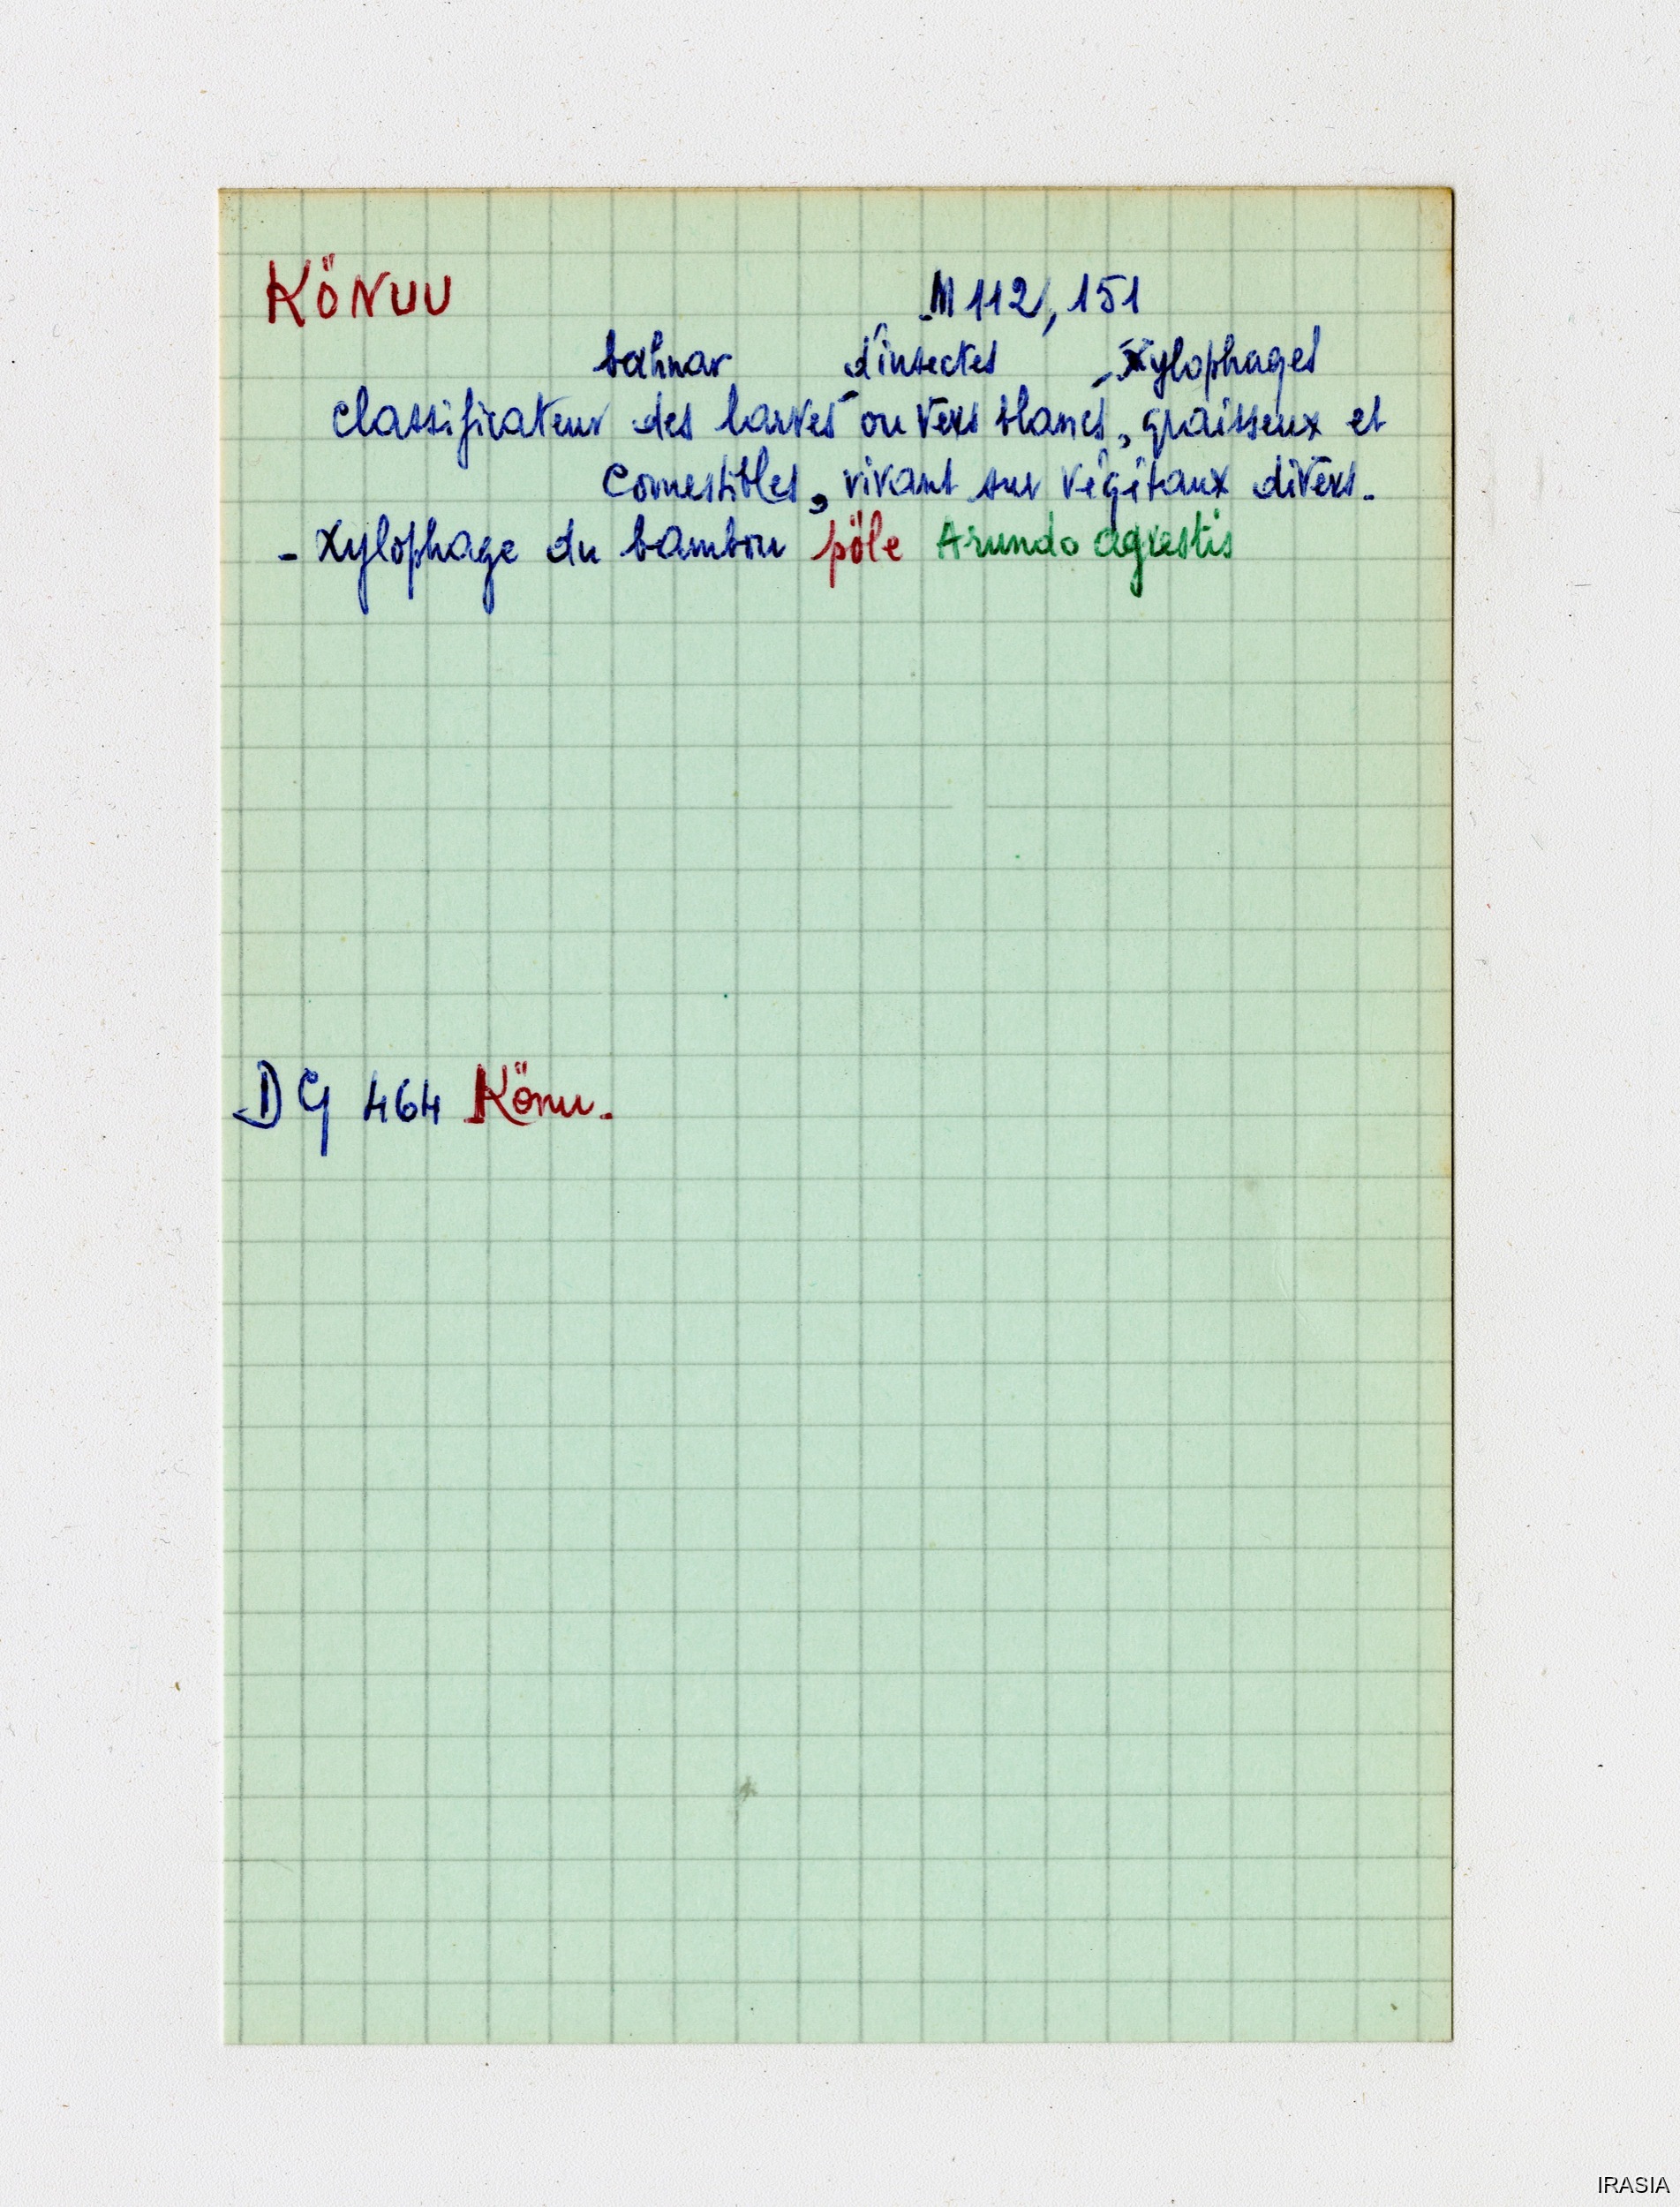 KÖNUU M 112, 151
bahnar d'insectes - Xylophages
Classificateur des larves ou vers blancs, graisseux et
comestibles, vivant sur végétaux divers.
- Xylophage du bambou pöle Arundo agrestis
DG 464 Könu.
IRASIA